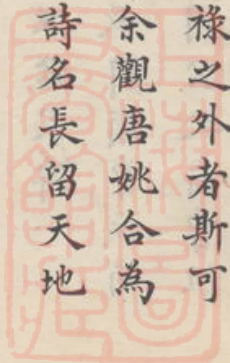 祿之外者斯可
余觀唐姚合為
詩名長留天地